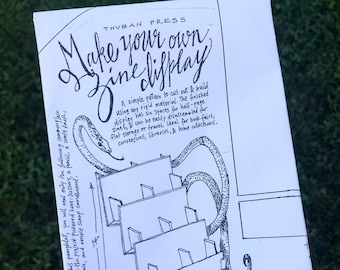 THUBAN PRESS
Make your own
Zine display
A simple pattern to cut out & build
using any rigid material. The finished
display has six spaces for half-page
zines, & can be easily disassembled for
flat storage or travel. Ideal for book-fairs,
conventions, libraries, & home collections.
pamphlet, you will need only the following